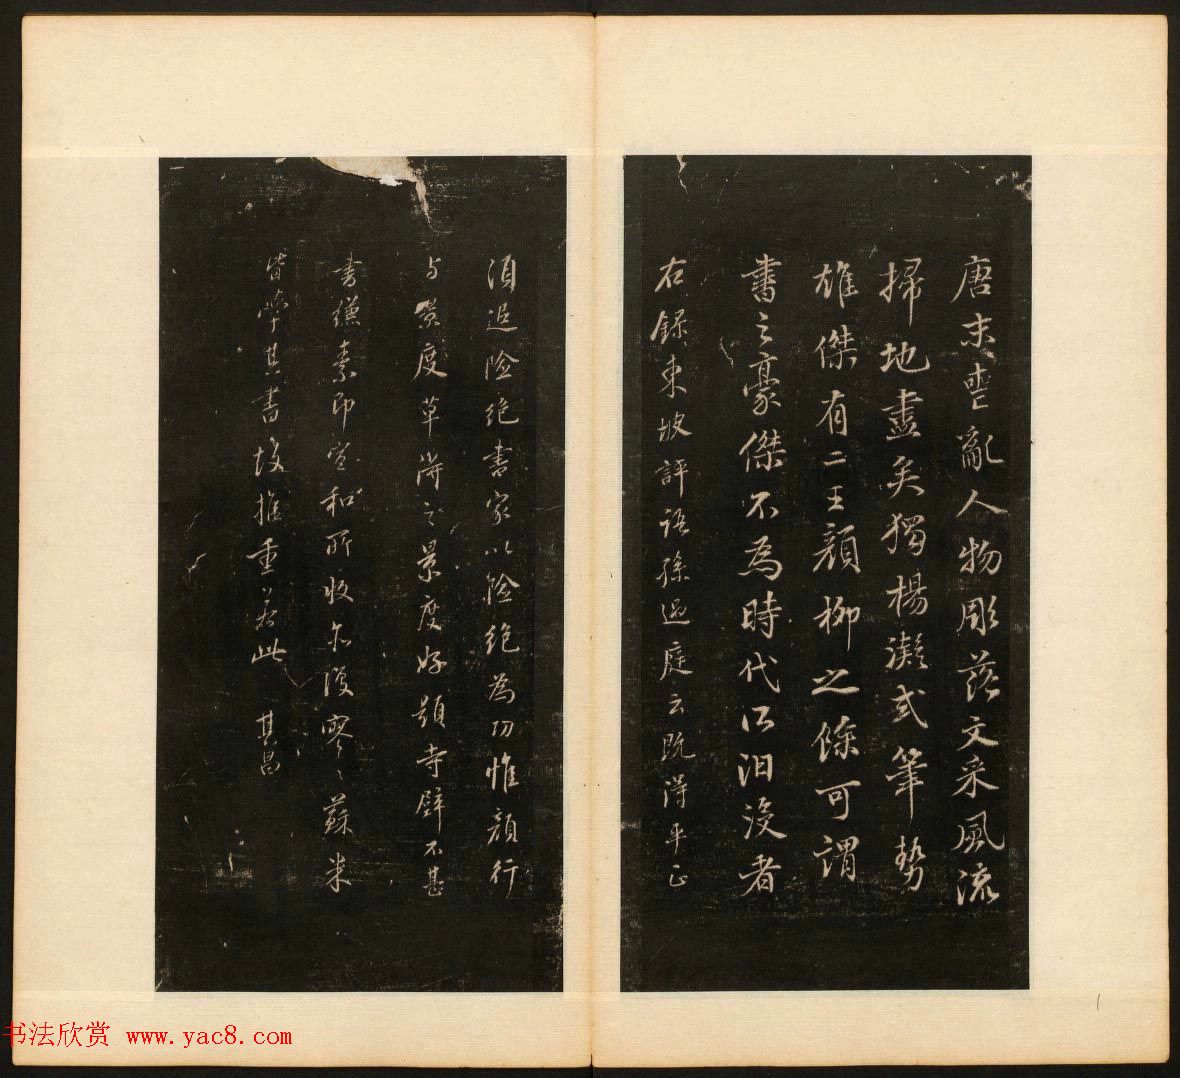 唐末喪亂人物彫落文采風流
掃地盡矣獨楊凝式筆勢
雄傑有二王顏柳之餘可謂
書之豪傑不為時代所汩沒者
右錄東坡評語孫過庭云既得平正
須追險絕書家以險絕為功惟顏行
与景度草得之景度好題寺壁不甚
書縑素即宣和所收亦復寥寥蘇米
皆學其書故推重若此 其昌
书法欣赏 www.yac8.com